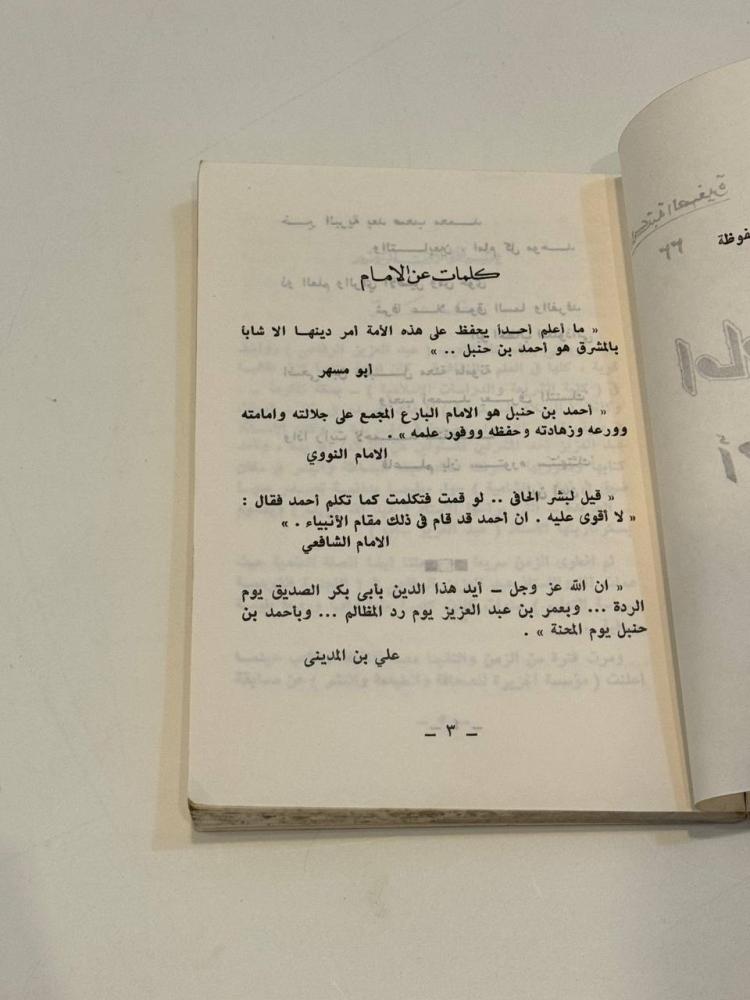 كلمات عن الامام
« ما أعلم أحـداً يحفظ على هذه الأمة أمر دينهـا الا شاباً
بالمشرق هو أحمد بن حنبل .. »
أبو مسهر
« أحمد بن حنبل هو الامام البارع المجمع على جلالته وامامته
وورعه وزهادته وحفظه ووفور علمه » .
الامام النووي
« قيل لبشر الحافى .. لو قمت فتكلمت كما تكلم أحمد فقال :
« لا أقوى عليه . ان أحمد قد قام فى ذلك مقام الأنبياء . »
الامام الشافعي
« ان الله عز وجل ــ أيد هذا الدين بأبى بكر الصديق يوم
الردة ... وبعمر بن عبد العزيز يوم رد المظالم ... وبأحمد بن
حنبل يوم المحنة » .
علي بن المدينى
ــ ٣ ــ